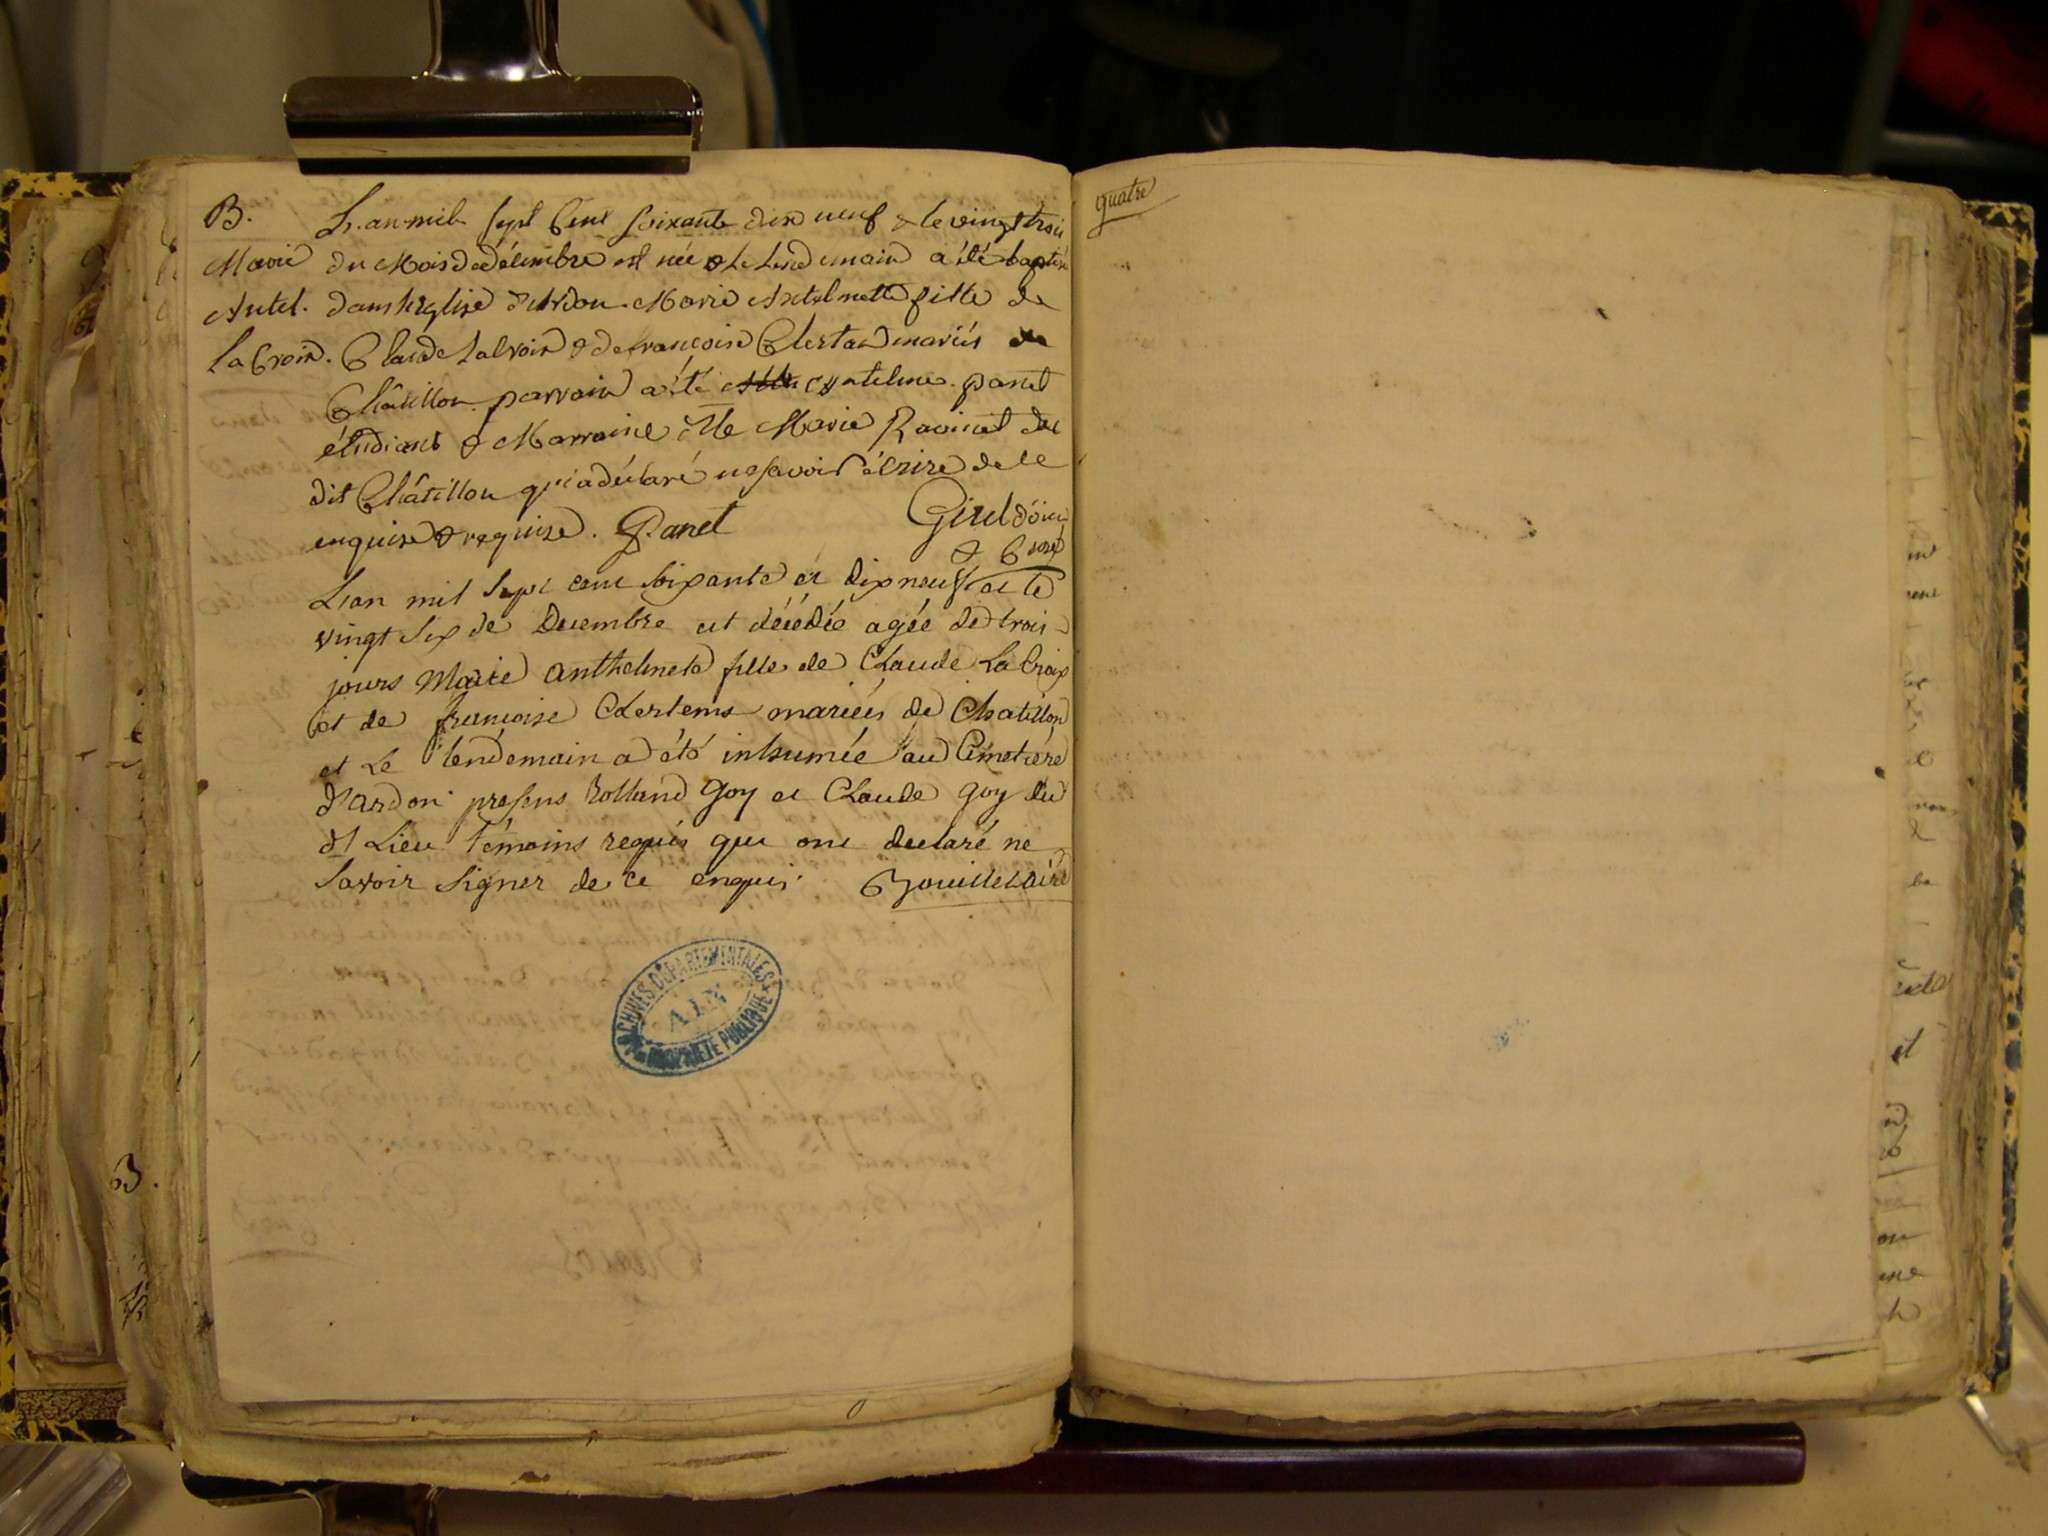 B. L'an mil sept Cent soixante dix neuf & le vingt trois
Marie du Mois de décembre est née & le lendemain a été baptisé
Antel. dans l'église d'Ardon Marie Antelmette fille de
la Croix. Claude Lacroix & de françoise mariés de
Châtillon. parrain a été antelme panet
étudiant & Marraine Dlle Marie Ravinet du
dit Châtillon qui a déclaré ne savoir écrire de ce
enquise & requise. Panet
L'an mil sept cent soixante et dix neuf et le
vingt six de Decembre est décédée agée de trois
jours Marie anthelmete fille de Claude La Croix
et de francoise mariés de Chatillon
et Le lendemain a été inhumée au Cimetière
d'Ardon presens Rolland Goy et Claude Goy du
dt Lieu témoins requis qui ont declaré ne
savoir signer de ce enquis.
ARCHIVES DÉPARTEMENTALES
AIN
PROPRIÉTÉ PUBLIQUE
quatre
B.